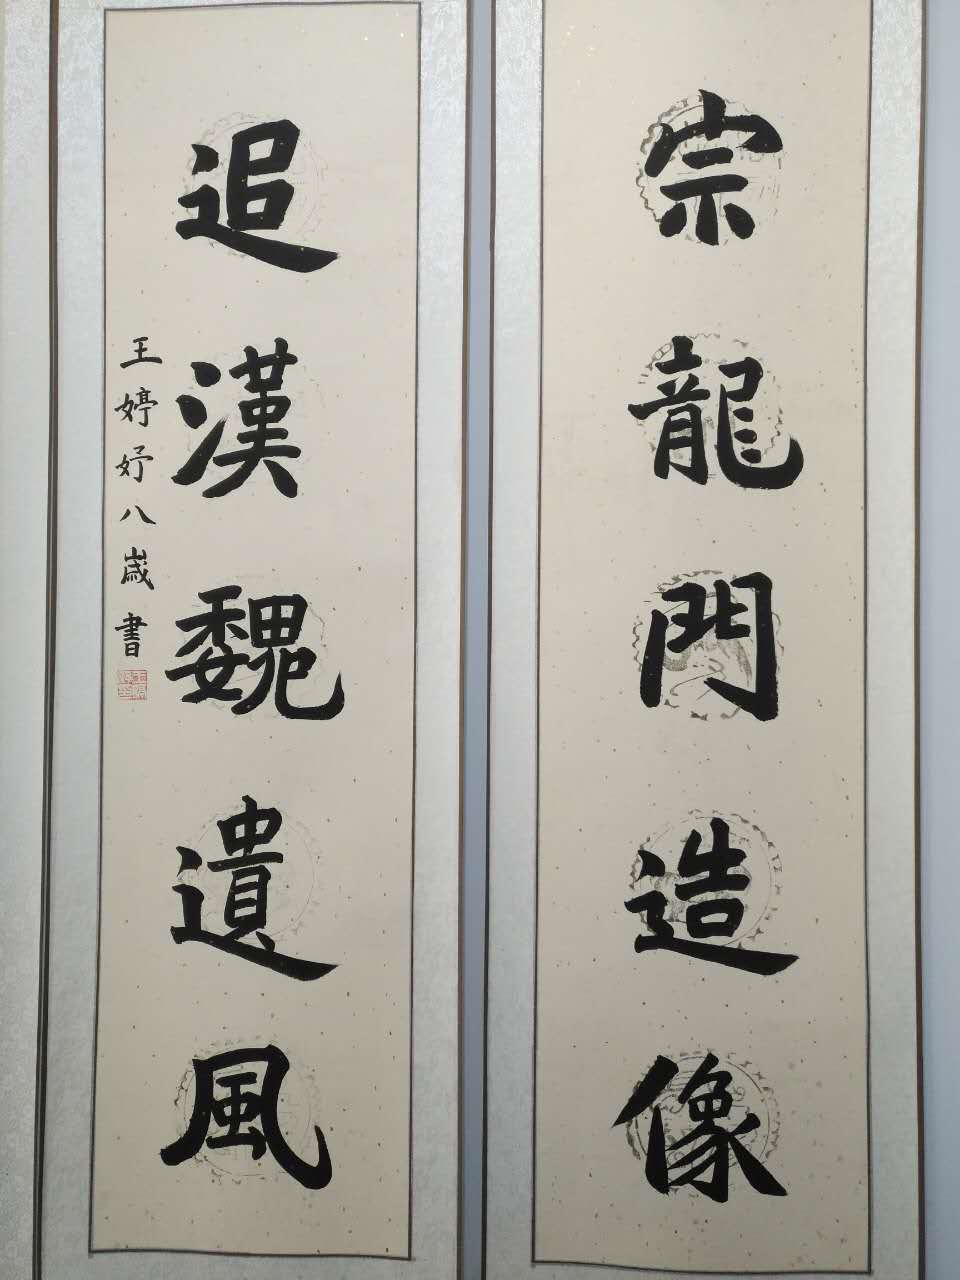 宗龍門造像
追漢魏遺風
王婷妤八歲書